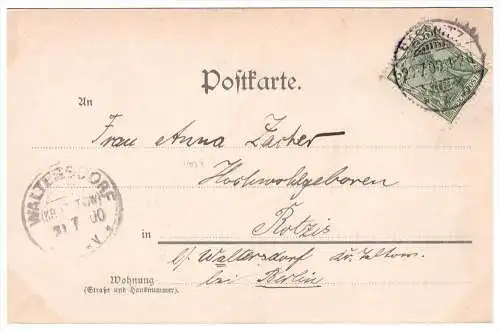 SASSNITZ
Postkarte.
An
Frau Anna Zacher
Hochwohlgeboren
Rotzis
in
b/ Waltersdorf Kr. Teltow.
bei Berlin
WALTERSDORF
7 00
Wohnung
(Straße und Hausnummer).